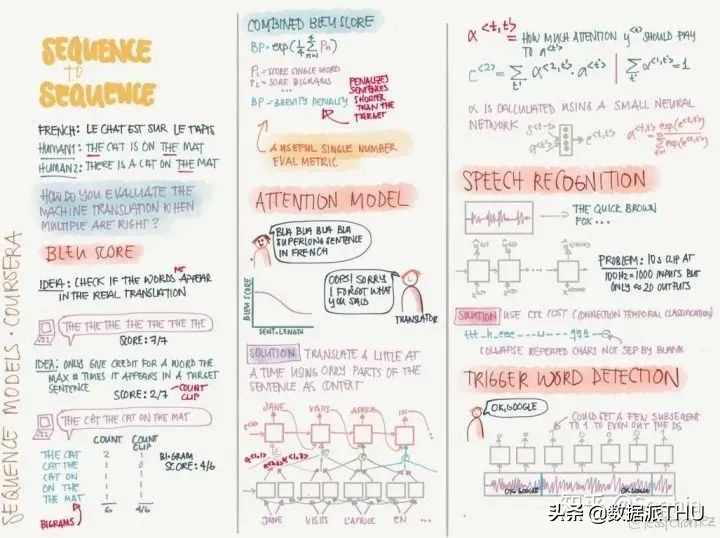 SEQUENCE
to
SEQUENCE
FRENCH: LE CHAT EST SUR LE TAPIS
HUMAN1: THE CAT IS ON THE MAT
HUMAN2: THERE IS A CAT ON THE MAT
HOW DO YOU EVALUATE THE
MACHINE TRANSLATION WHEN
MULTIPLE ARE RIGHT?
BLEU SCORE
IDEA: CHECK IF THE WORDS MT APPEAR
IN THE REAL TRANSLATION
THE THE THE THE THE THE THE
SCORE: 7/7
IDEA: ONLY GIVE CREDIT FOR A WORD THE
MAX # TIMES IT APPEARS IN A TARGET
SENTENCE
SCORE: 2/7
COUNT
CLIP
THE CAT THE CAT ON THE MAT
COUNT
COUNT CLIP
THE CAT 2 1
CAT THE 1 0
CAT ON 1 1
ON THE 1 1
THE MAT 1 1
6 4/6
BIGRAM
SCORE: 4/6
BIGRAMS
SEQUENCE MODELS · COURSERA
COMBINED BLEU SCORE
BP · exp(1/4 Σ Pn)
P1 = SCORE SINGLE WORD
P2 = SCORE BIGRAMS
...
BP = BREVITY PENALTY
PENALIZES
SENTENCES
SHORTER
THAN THE
TARGET
A USEFUL SINGLE NUMBER
EVAL METRIC
ATTENTION MODEL
BLA BLA BLA BLA
SUPERLONG SENTENCE
IN FRENCH
BLEU SCORE
SENT. LENGTH
OOPS! SORRY
I FORGOT WHAT
YOU SAID
TRANSLATOR
SOLUTION: TRANSLATE A LITTLE AT
A TIME USING ONLY PARTS OF THE
SENTENCE AS CONTEXT
JANE VISITS AFRICA IN ...
JANE VISITS L'AFRICE EN ...
α<t,t'> = HOW MUCH ATTENTION y<t> SHOULD PAY
TO a<t'>
c<2> = Σ α<2,t'> · a<t'> | Σ α<1,t'> = 1
α IS CALCULATED USING A SMALL NEURAL
NETWORK
s<t-1>
a<t'>
e<t,t'>
α<t,t'> = exp(e<t,t'>) / Σ exp(e<t,t'>)
SPEECH RECOGNITION
THE QUICK BROWN
FOX ...
PROBLEM: 10s CLIP AT
100Hz = 1000 INPUTS BUT
ONLY ≈ 20 OUTPUTS
SOLUTION USE CTC COST (CONNECTION TEMPORAL CLASSIFICATION)
ttt_h_eee---ш---qqq--
COLLAPSE REPEATED CHARS NOT SEP BY BLANK
TRIGGER WORD DETECTION
OK, GOOGLE
COULD SET A FEW SUBSEQENT
TO 1 TO EVEN OUT THE DS
OK GOOGLE OK GOOGLE
头条 @数据派THU